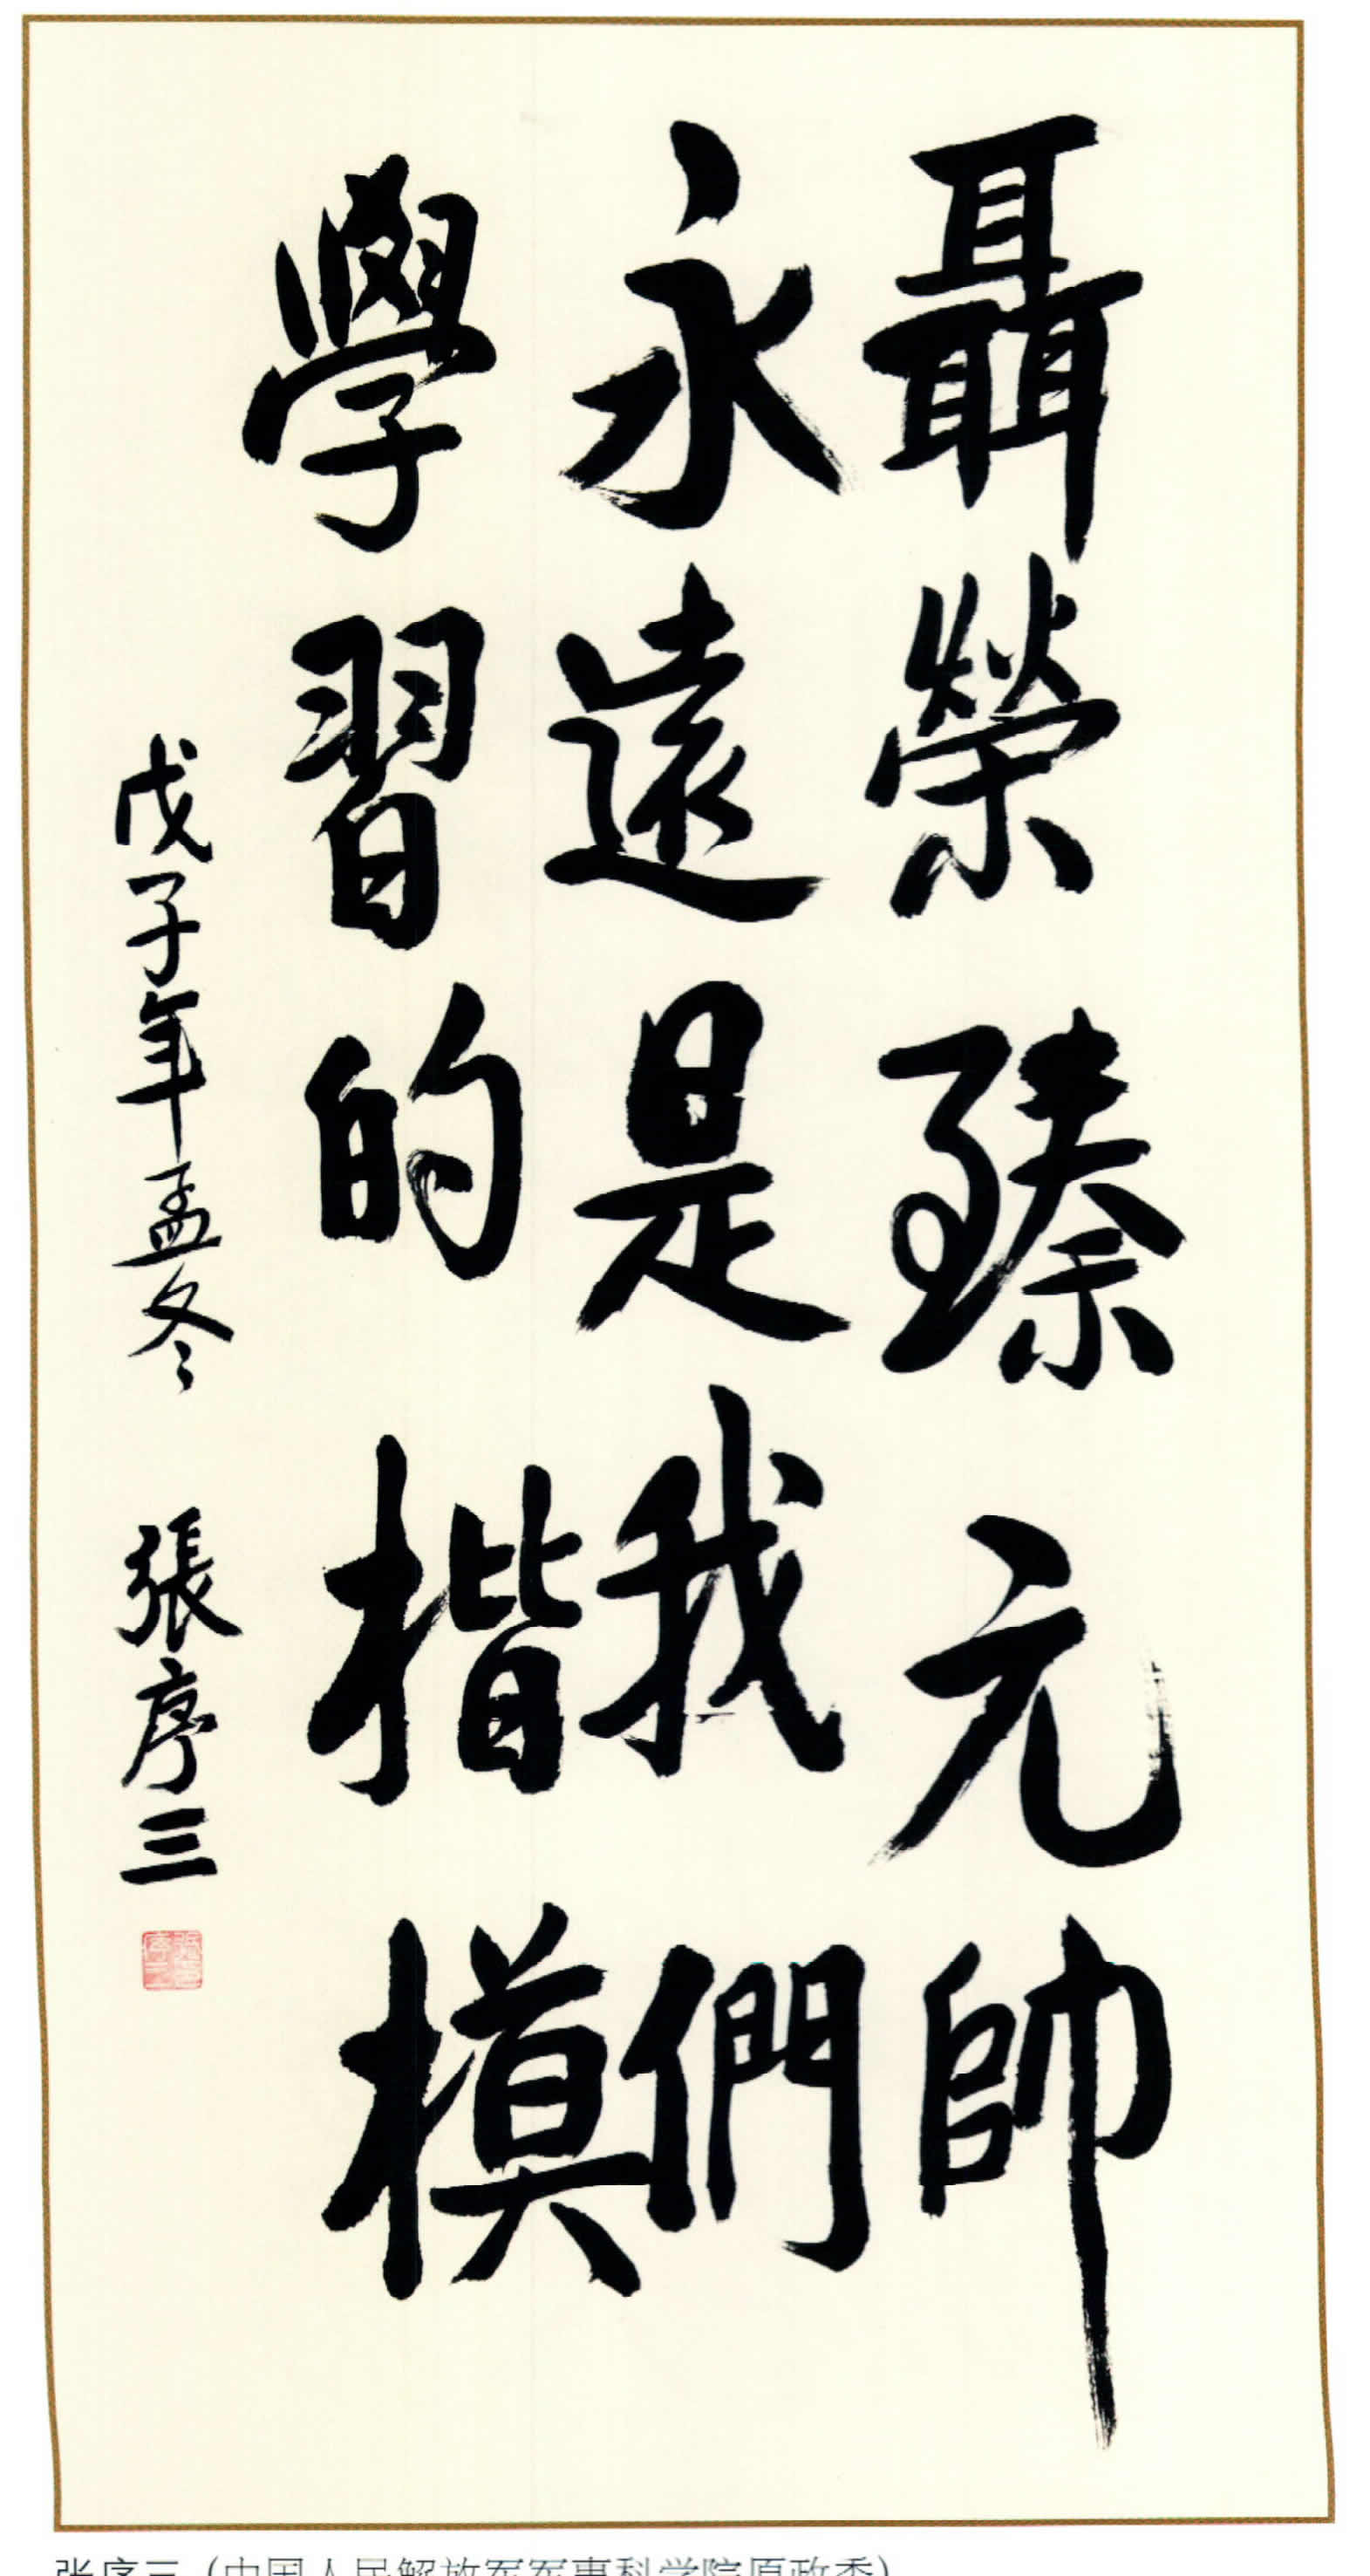 聶榮臻元帥
永遠是我們
學習的楷模
戊子年孟冬 張序三
张序三（中国人民解放军军事科学院原政委）